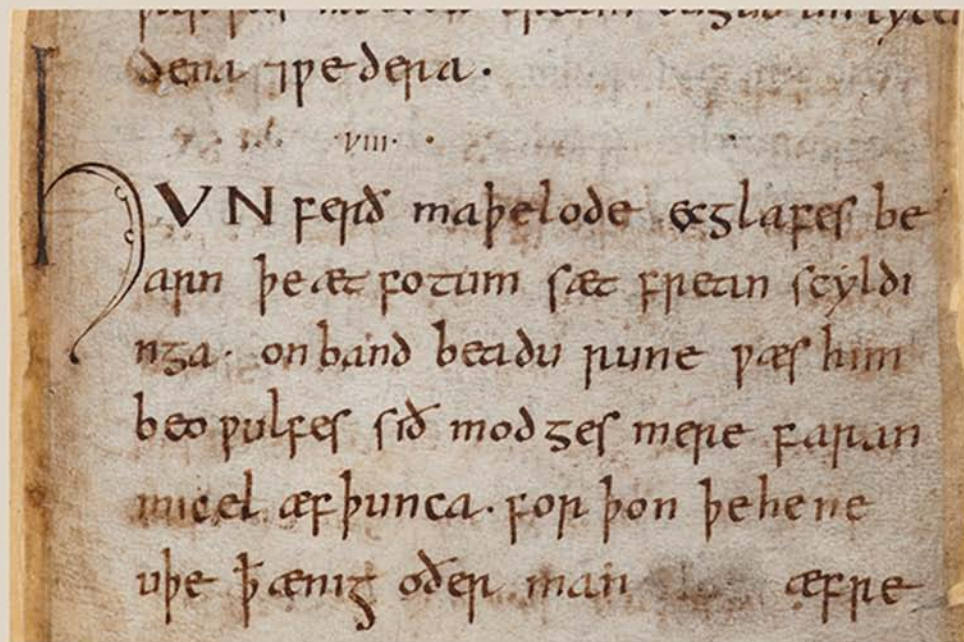 dena ⁊ ƿedera.
.viii.
HVN ferð maþelode ecglafes be
arn þe æt fotum sæt frean scyldi
nga. onband beadu rune ƿæs him
beoƿulfes sið modges mere faran
micel æfþunca. for þon þe he ne
uþe ꝥ ænig oðer man æfre